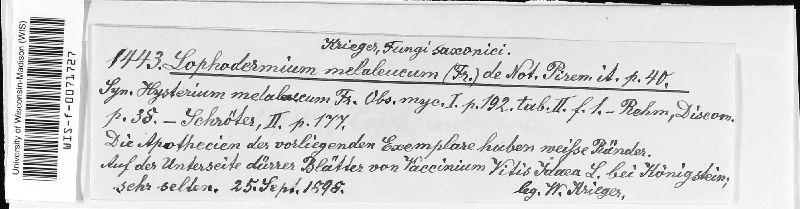 University of Wisconsin-Madison (WIS)
WIS-f-0071727
Krieger, Fungi saxonici.
1443. Lophodermium melaleucum (Fr.) de Not. Pirem. it. p. 40.
Syn. Hysterium melaleucum Fr. Obs. myc. I. p. 192. tab. II. f. 1. – Rehm, Discom.
p. 35. – Schröter, II, p. 177.
Die Apothecien der vorliegenden Exemplare haben weiße Ränder.
Auf der Unterseite dürrer Blätter von Vaccinium Vitis Idaea L. bei Königstein,
sehr selten. 25. Sept. 1895.
leg. W. Krieger.